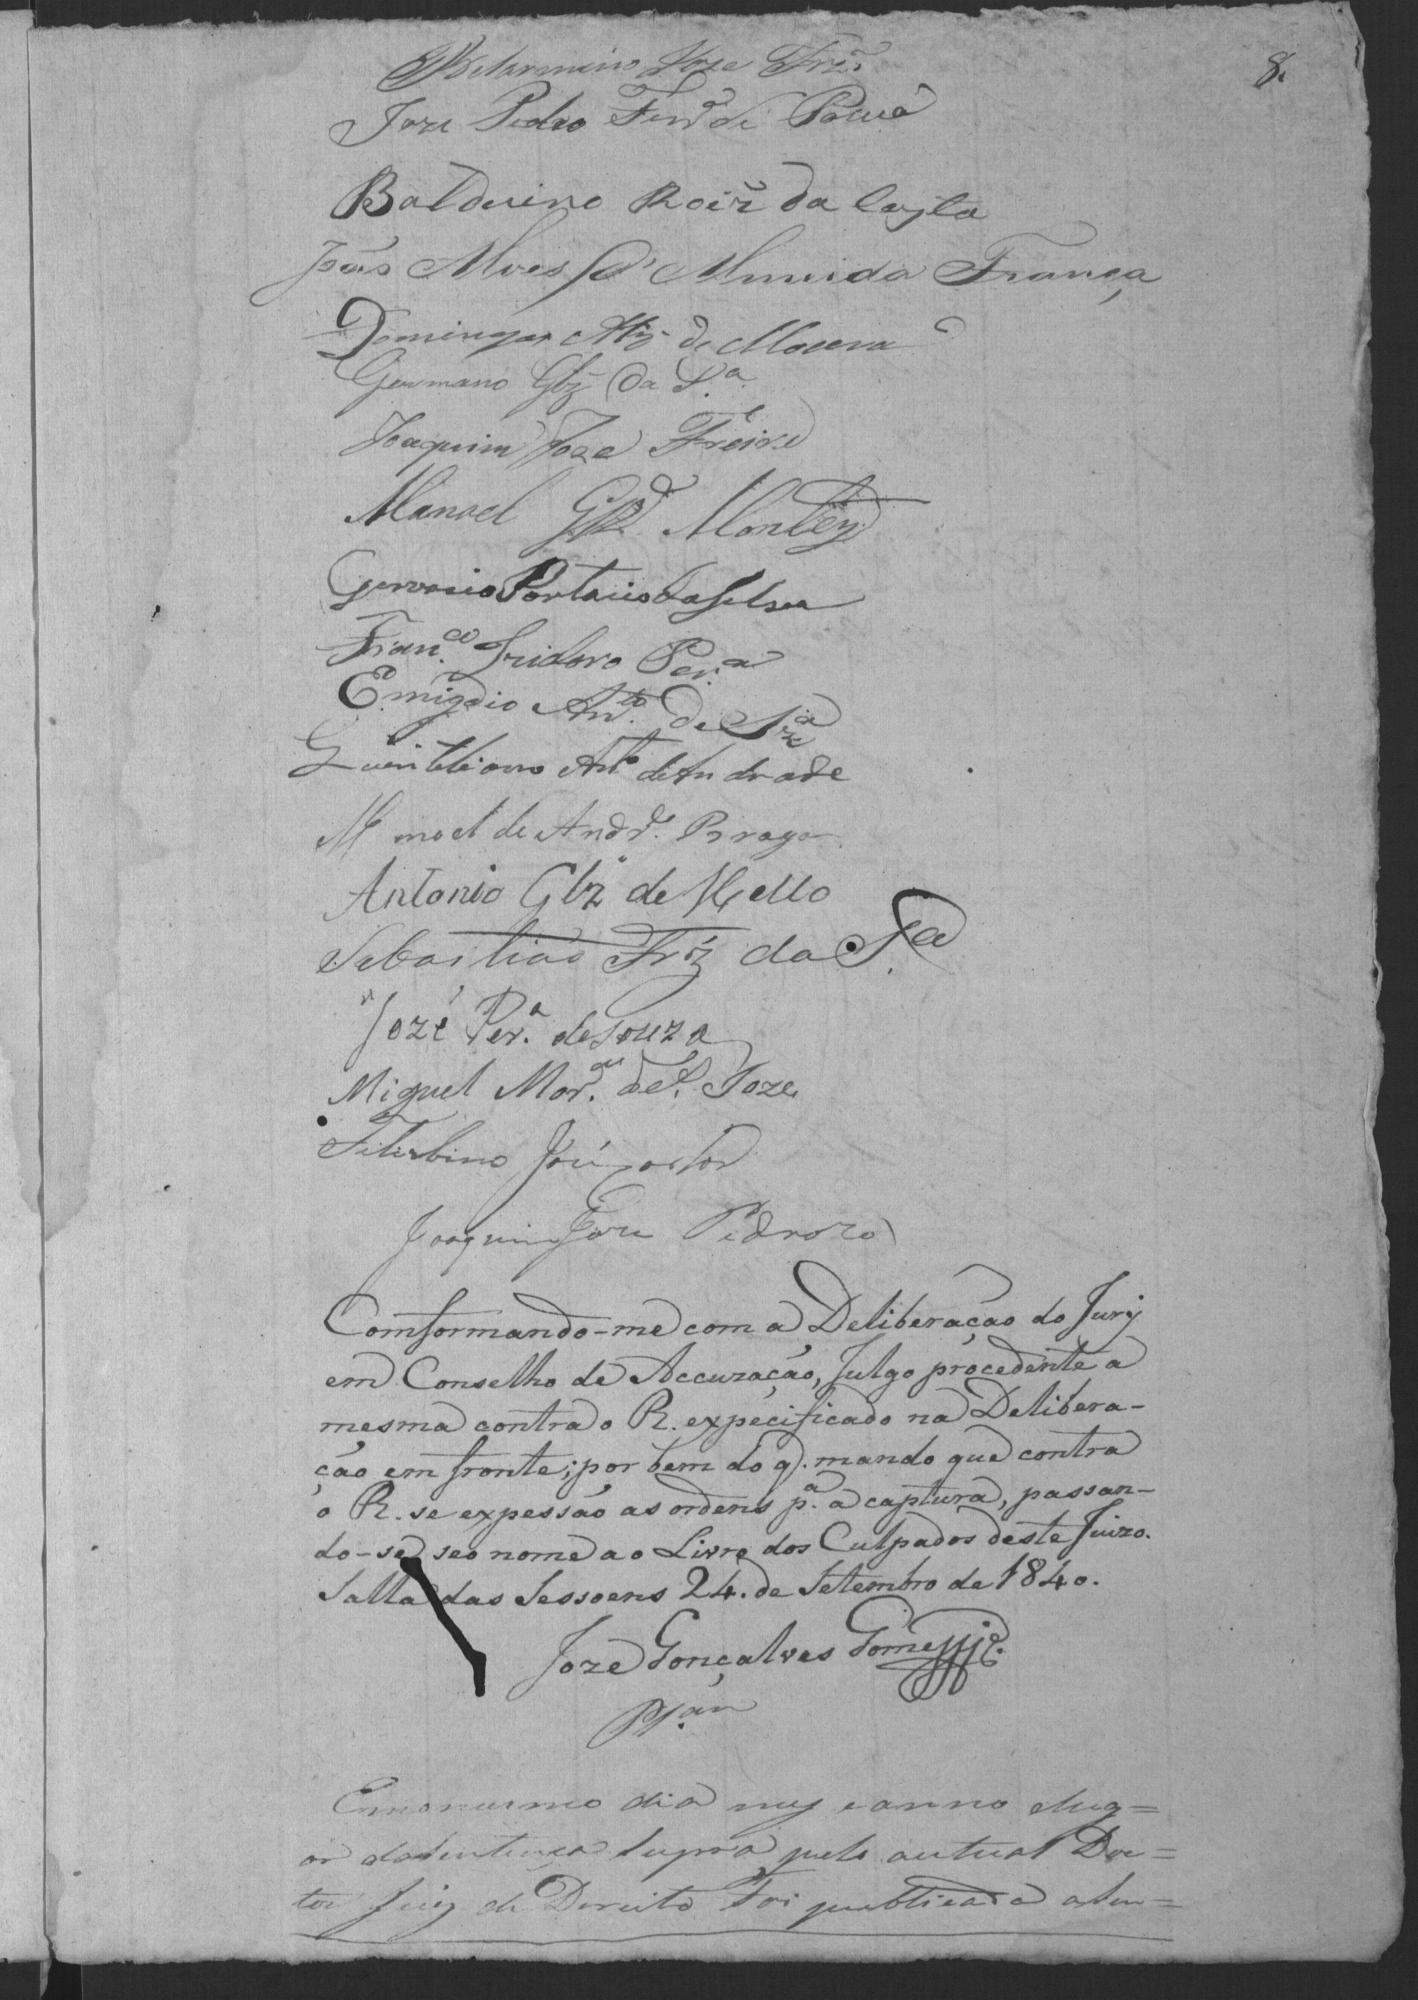 8.
Belarmino Joze Frz.
Joze Pedro Ferr.ª de
Balduino Roiz da Costa
João Alves d'Almeida França
Domingos Miz de Moura
Germano Glz da S.ª
Joaquim Joze Freire
Manoel Montey
Gervasio Portacio da Selva
Fran.co Izidoro Per.ª
Emigdio An.to de Sz.ª
Quintiliano An.to de Andrade
Manoel de Andr.e Braga
Antonio Glz de Mello
Sebastião Frz da S.ª
Jozé Per.ª de souza
Miguel Mor.ª de S. Joze
José
Joaquim Joze Pedrozo
Comformando-me com a Deliberação do Jury
em Conselho de Accuzação, Julgo procedente a
mesma contra o R. expecificado na Delibera-
ção em fronte; por bem do q. mando que contra
o R. se expessão as ordens p.ª a captura, passan-
do-se seo nome ao Livro dos Culpados deste Juizo.
Salla das Sessoens 24. de Setembro de 1840.
Joze Gonçalves Gomes
Em o mesmo dia mez e anno e lug=
ar da sentença supra pelo actual Dou=
tor Juiz de Dereito foi publicada a sen=